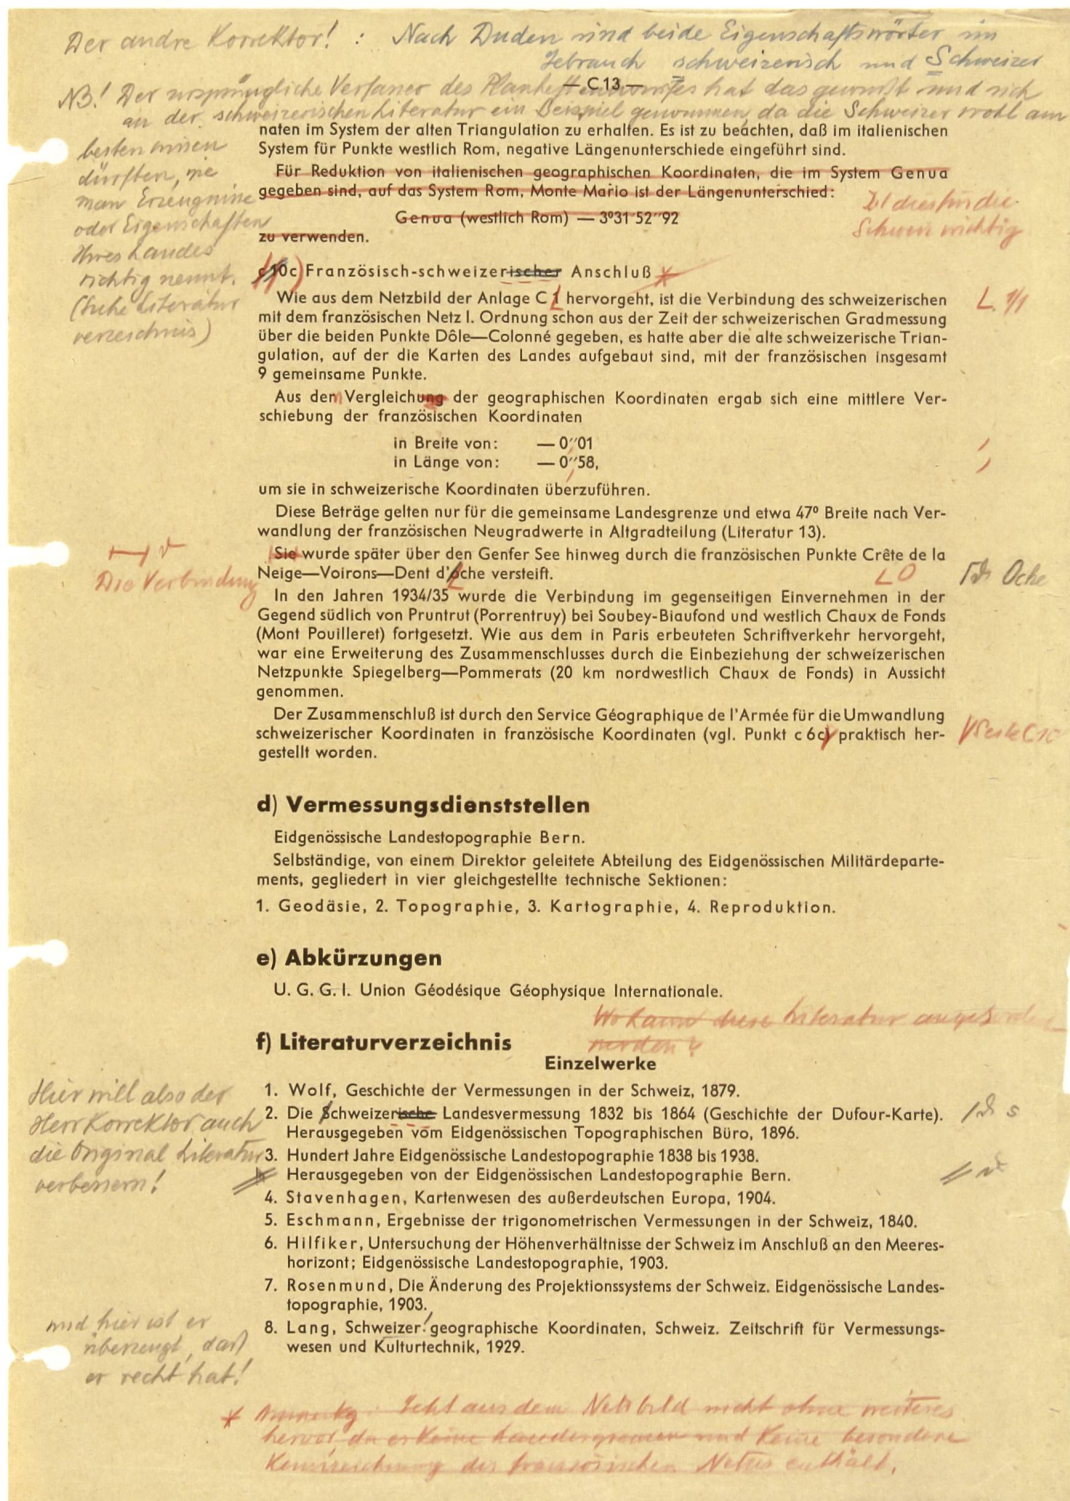 Der andre Korrektor! : Nach Duden sind beide Eigenschaftswörter im
Gebrauch schweizerisch und Schweizer
— C 13 —
NB! Der ursprüngliche Verfasser des Planheftentwurfes hat das gewußt und sich
an der schweizerischen Literatur ein Beispiel genommen, da die Schweizer wohl am
besten wissen
dürften, wie
man Erzeugnisse
oder Eigenschaften
Ihres Landes
richtig nennt.
(Siehe Literatur
verzeichnis)
naten im System der alten Triangulation zu erhalten. Es ist zu beachten, daß im italienischen
System für Punkte westlich Rom, negative Längenunterschiede eingeführt sind.
Für Reduktion von italienischen geographischen Koordinaten, die im System Genua
gegeben sind, auf das System Rom, Monte Mario ist der Längenunterschied:
Genua (westlich Rom) — 3⁰31′52″92
zu verwenden.
Ist dies für die
Schweiz wichtig
c 10c) Französisch-schweizerischer Anschluß *
Wie aus dem Netzbild der Anlage C 1 hervorgeht, ist die Verbindung des schweizerischen
mit dem französischen Netz I. Ordnung schon aus der Zeit der schweizerischen Gradmessung
über die beiden Punkte Dôle—Colonné gegeben, es hatte aber die alte schweizerische Trian-
gulation, auf der die Karten des Landes aufgebaut sind, mit der französischen insgesamt
9 gemeinsame Punkte.
Aus den Vergleichung der geographischen Koordinaten ergab sich eine mittlere Ver-
schiebung der französischen Koordinaten
in Breite von: — 0″01
in Länge von: — 0″58,
um sie in schweizerische Koordinaten überzuführen.
Diese Beträge gelten nur für die gemeinsame Landesgrenze und etwa 47⁰ Breite nach Ver-
wandlung der französischen Neugradwerte in Altgradteilung (Literatur 13).
Die Verbindung
Sie wurde später über den Genfer See hinweg durch die französischen Punkte Crête de la
Neige—Voirons—Dent d'Oche versteift.
Oche
In den Jahren 1934/35 wurde die Verbindung im gegenseitigen Einvernehmen in der
Gegend südlich von Pruntrut (Porrentruy) bei Soubey-Biaufond und westlich Chaux de Fonds
(Mont Pouilleret) fortgesetzt. Wie aus dem in Paris erbeuteten Schriftverkehr hervorgeht,
war eine Erweiterung des Zusammenschlusses durch die Einbeziehung der schweizerischen
Netzpunkte Spiegelberg—Pommerats (20 km nordwestlich Chaux de Fonds) in Aussicht
genommen.
Der Zusammenschluß ist durch den Service Géographique de l'Armée für die Umwandlung
schweizerischer Koordinaten in französische Koordinaten (vgl. Punkt c 6c) praktisch her-
gestellt worden.
Seite C10
d) Vermessungsdienststellen
Eidgenössische Landestopographie Bern.
Selbständige, von einem Direktor geleitete Abteilung des Eidgenössischen Militärdeparte-
ments, gegliedert in vier gleichgestellte technische Sektionen:
1. Geodäsie, 2. Topographie, 3. Kartographie, 4. Reproduktion.
e) Abkürzungen
U. G. G. I. Union Géodésique Géophysique Internationale.
Wo kann diese Literatur angefordert
werden?
f) Literaturverzeichnis
Einzelwerke
Hier will also der
Herr Korrektor auch
die Original Literatur
verbessern!
1. Wolf, Geschichte der Vermessungen in der Schweiz, 1879.
2. Die Schweizerische Landesvermessung 1832 bis 1864 (Geschichte der Dufour-Karte).
Herausgegeben vom Eidgenössischen Topographischen Büro, 1896.
s
3. Hundert Jahre Eidgenössische Landestopographie 1838 bis 1938.
Herausgegeben von der Eidgenössischen Landestopographie Bern.
4. Stavenhagen, Kartenwesen des außerdeutschen Europa, 1904.
5. Eschmann, Ergebnisse der trigonometrischen Vermessungen in der Schweiz, 1840.
6. Hilfiker, Untersuchung der Höhenverhältnisse der Schweiz im Anschluß an den Meeres-
horizont; Eidgenössische Landestopographie, 1903.
7. Rosenmund, Die Änderung des Projektionssystems der Schweiz. Eidgenössische Landes-
topographie, 1903.
8. Lang, Schweizer geographische Koordinaten, Schweiz. Zeitschrift für Vermessungs-
wesen und Kulturtechnik, 1929.
und hier ist er
überzeugt, daß
er recht hat!
* Anmerkg. Geht aus dem Netzbild nicht ohne weiteres
hervor da es keine Landesgrenzen und keine besondere
Kennzeichnung des französischen Netzes enthält.